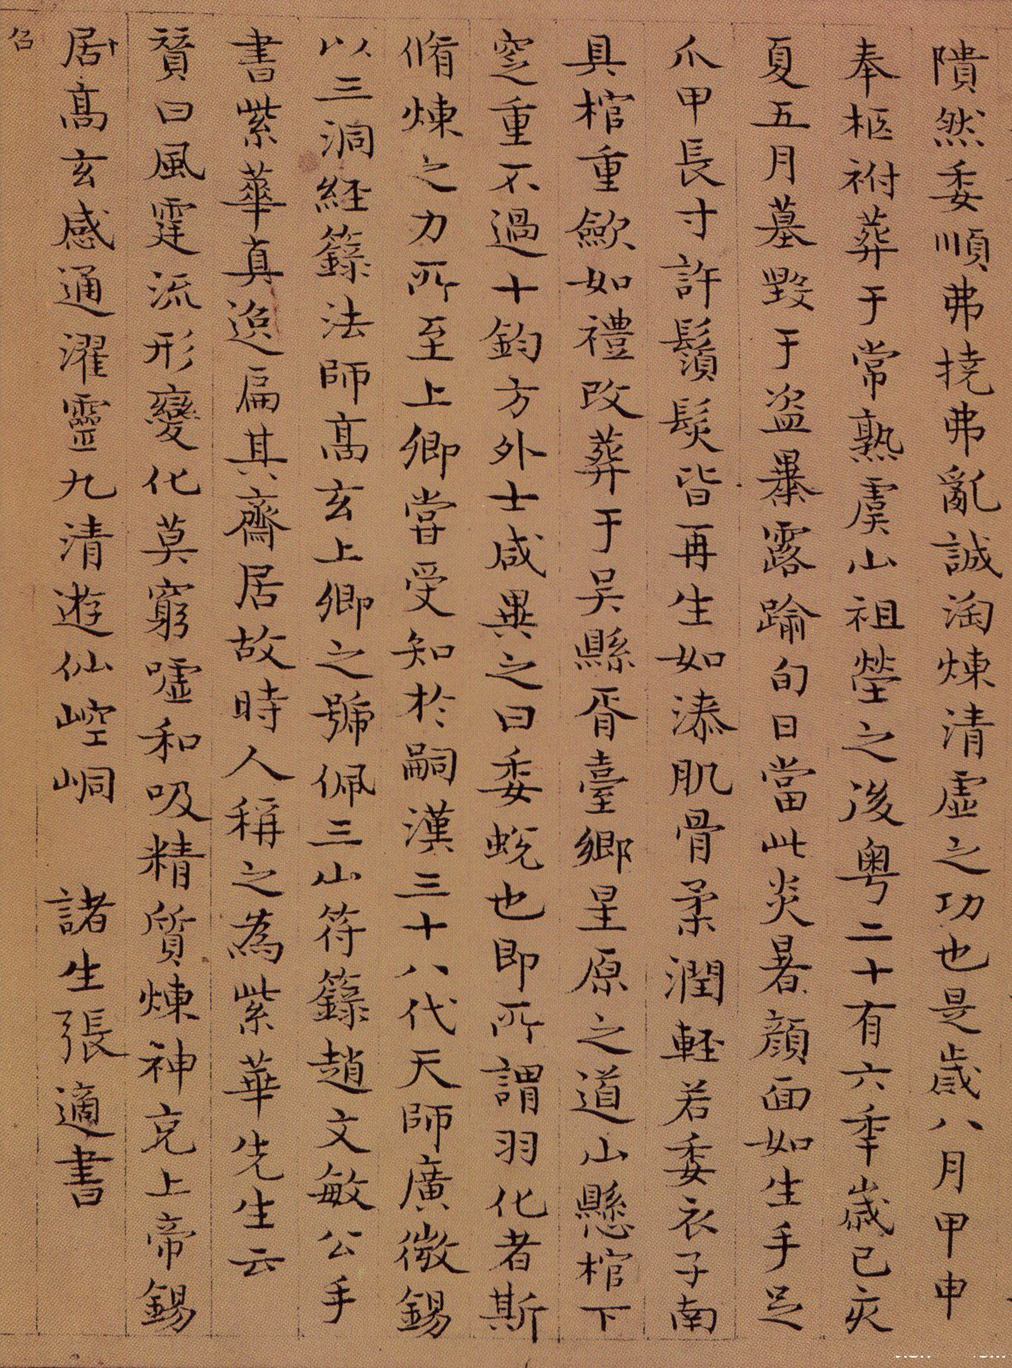 隤然委順弗撓弗亂誠淘煉清虛之功也是歲八月甲申
奉柩祔葬于常熟虞山祖塋之後粤二十有六年歲己亥
夏五月墓毀于盜暴露踰旬日當此炎暑顔面如生手足
爪甲長寸許鬚髮皆再生如漆肌骨柔潤軽若委衣子南
具棺重斂如禮改葬于吴縣胥臺鄉星原之道山懸棺下
窆重不過十鈞方外士咸異之曰委蛻也即所謂羽化者斯
脩煉之力所至上卿嘗受知於嗣漢三十八代天師廣微錫
以三洞経籙法師髙玄上卿之號佩三山符籙趙文敏公手
書紫華真逸扁其齋居故時人稱之為紫華先生云
賛曰風霆流形變化莫窮噓和吸精質煉神完上帝錫
居髙玄感通濯靈九清遊仙崆峒 諸生張適書
卜
召